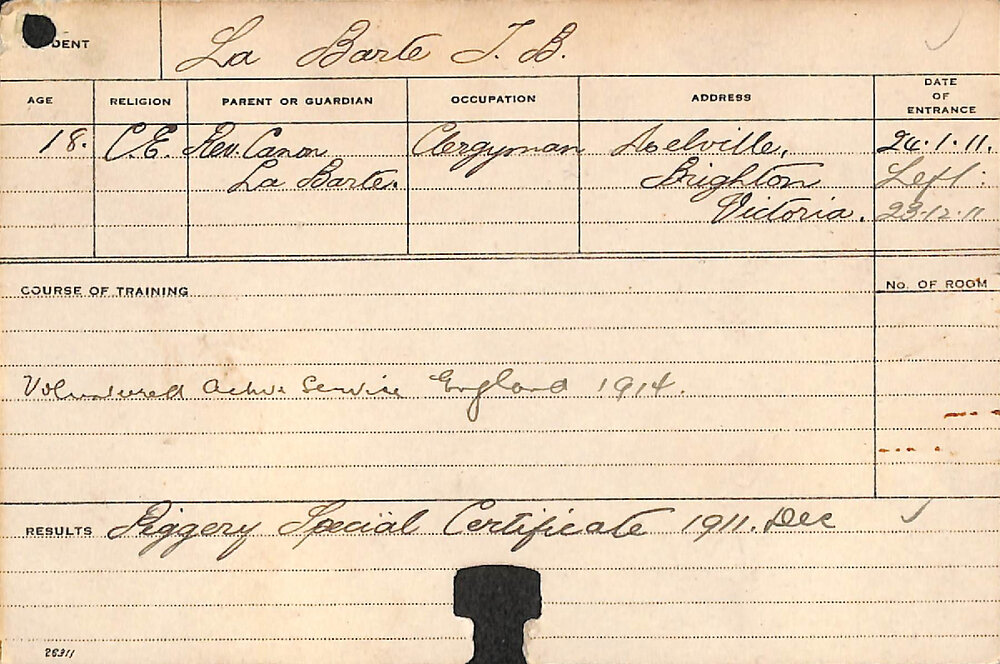 DENT La Barte J. B.
AGE RELIGION PARENT OR GUARDIAN OCCUPATION ADDRESS DATE OF ENTRANCE
18. C.E. Rev. Canon Clergyman Melville, 24.1.11.
La Barte. Brighton Left:
Victoria. 23.12.11
COURSE OF TRAINING No. OF ROOM
Volunteered Active Service England 1914.
RESULTS Piggery Special Certificate 1911. Dec
26311